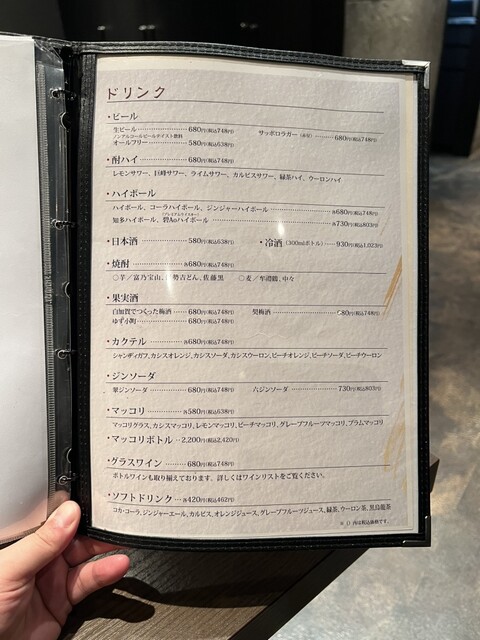 ドリンク
・ビール
生ビール………………680円(税込748円)
サッポロラガー(赤星)………680円(税込748円)
ノンアルコールビールテイスト飲料
オールフリー……………580円(税込638円)
・酎ハイ………………680円(税込748円)
レモンサワー、巨峰サワー、ライムサワー、カルピスサワー、緑茶ハイ、ウーロンハイ
・ハイボール
ハイボール、コーラハイボール、ジンジャーハイボール………………各680円(税込748円)
(プレミアムウイスキー)
知多ハイボール、碧Aoハイボール………………各730円(税込803円)
・日本酒………………580円(税込638円)
・冷酒(300mlボトル)……930円(税込1,023円)
・焼酎………………各680円(税込748円)
○芋／富乃宝山、 勢吉どん、佐藤黒 ○麦／ 、中々
・果実酒
白加賀でつくった梅酒……680円(税込748円)
梅酒………………680円(税込748円)
ゆず小町………………680円(税込748円)
・カクテル………………各680円(税込748円)
シャンディガフ、カシスオレンジ、カシスソーダ、カシスウーロン、ピーチオレンジ、ピーチソーダ、ピーチウーロン
・ジンソーダ
翠ジンソーダ………………680円(税込748円)
六ジンソーダ………………730円(税込803円)
・マッコリ………………各580円(税込638円)
マッコリグラス、カシスマッコリ、レモンマッコリ、ピーチマッコリ、グレープフルーツマッコリ、プラムマッコリ
・マッコリボトル…2,200円(税込2,420円)
・グラスワイン…………680円(税込748円)
ボトルワインも取り揃えております。詳しくはワインリストをご覧ください。
・ソフトドリンク…各420円(税込462円)
コカ・コーラ、ジンジャーエール、カルピス、オレンジジュース、グレープフルーツジュース、緑茶、ウーロン茶、黒烏龍茶
※()内は税込価格です。